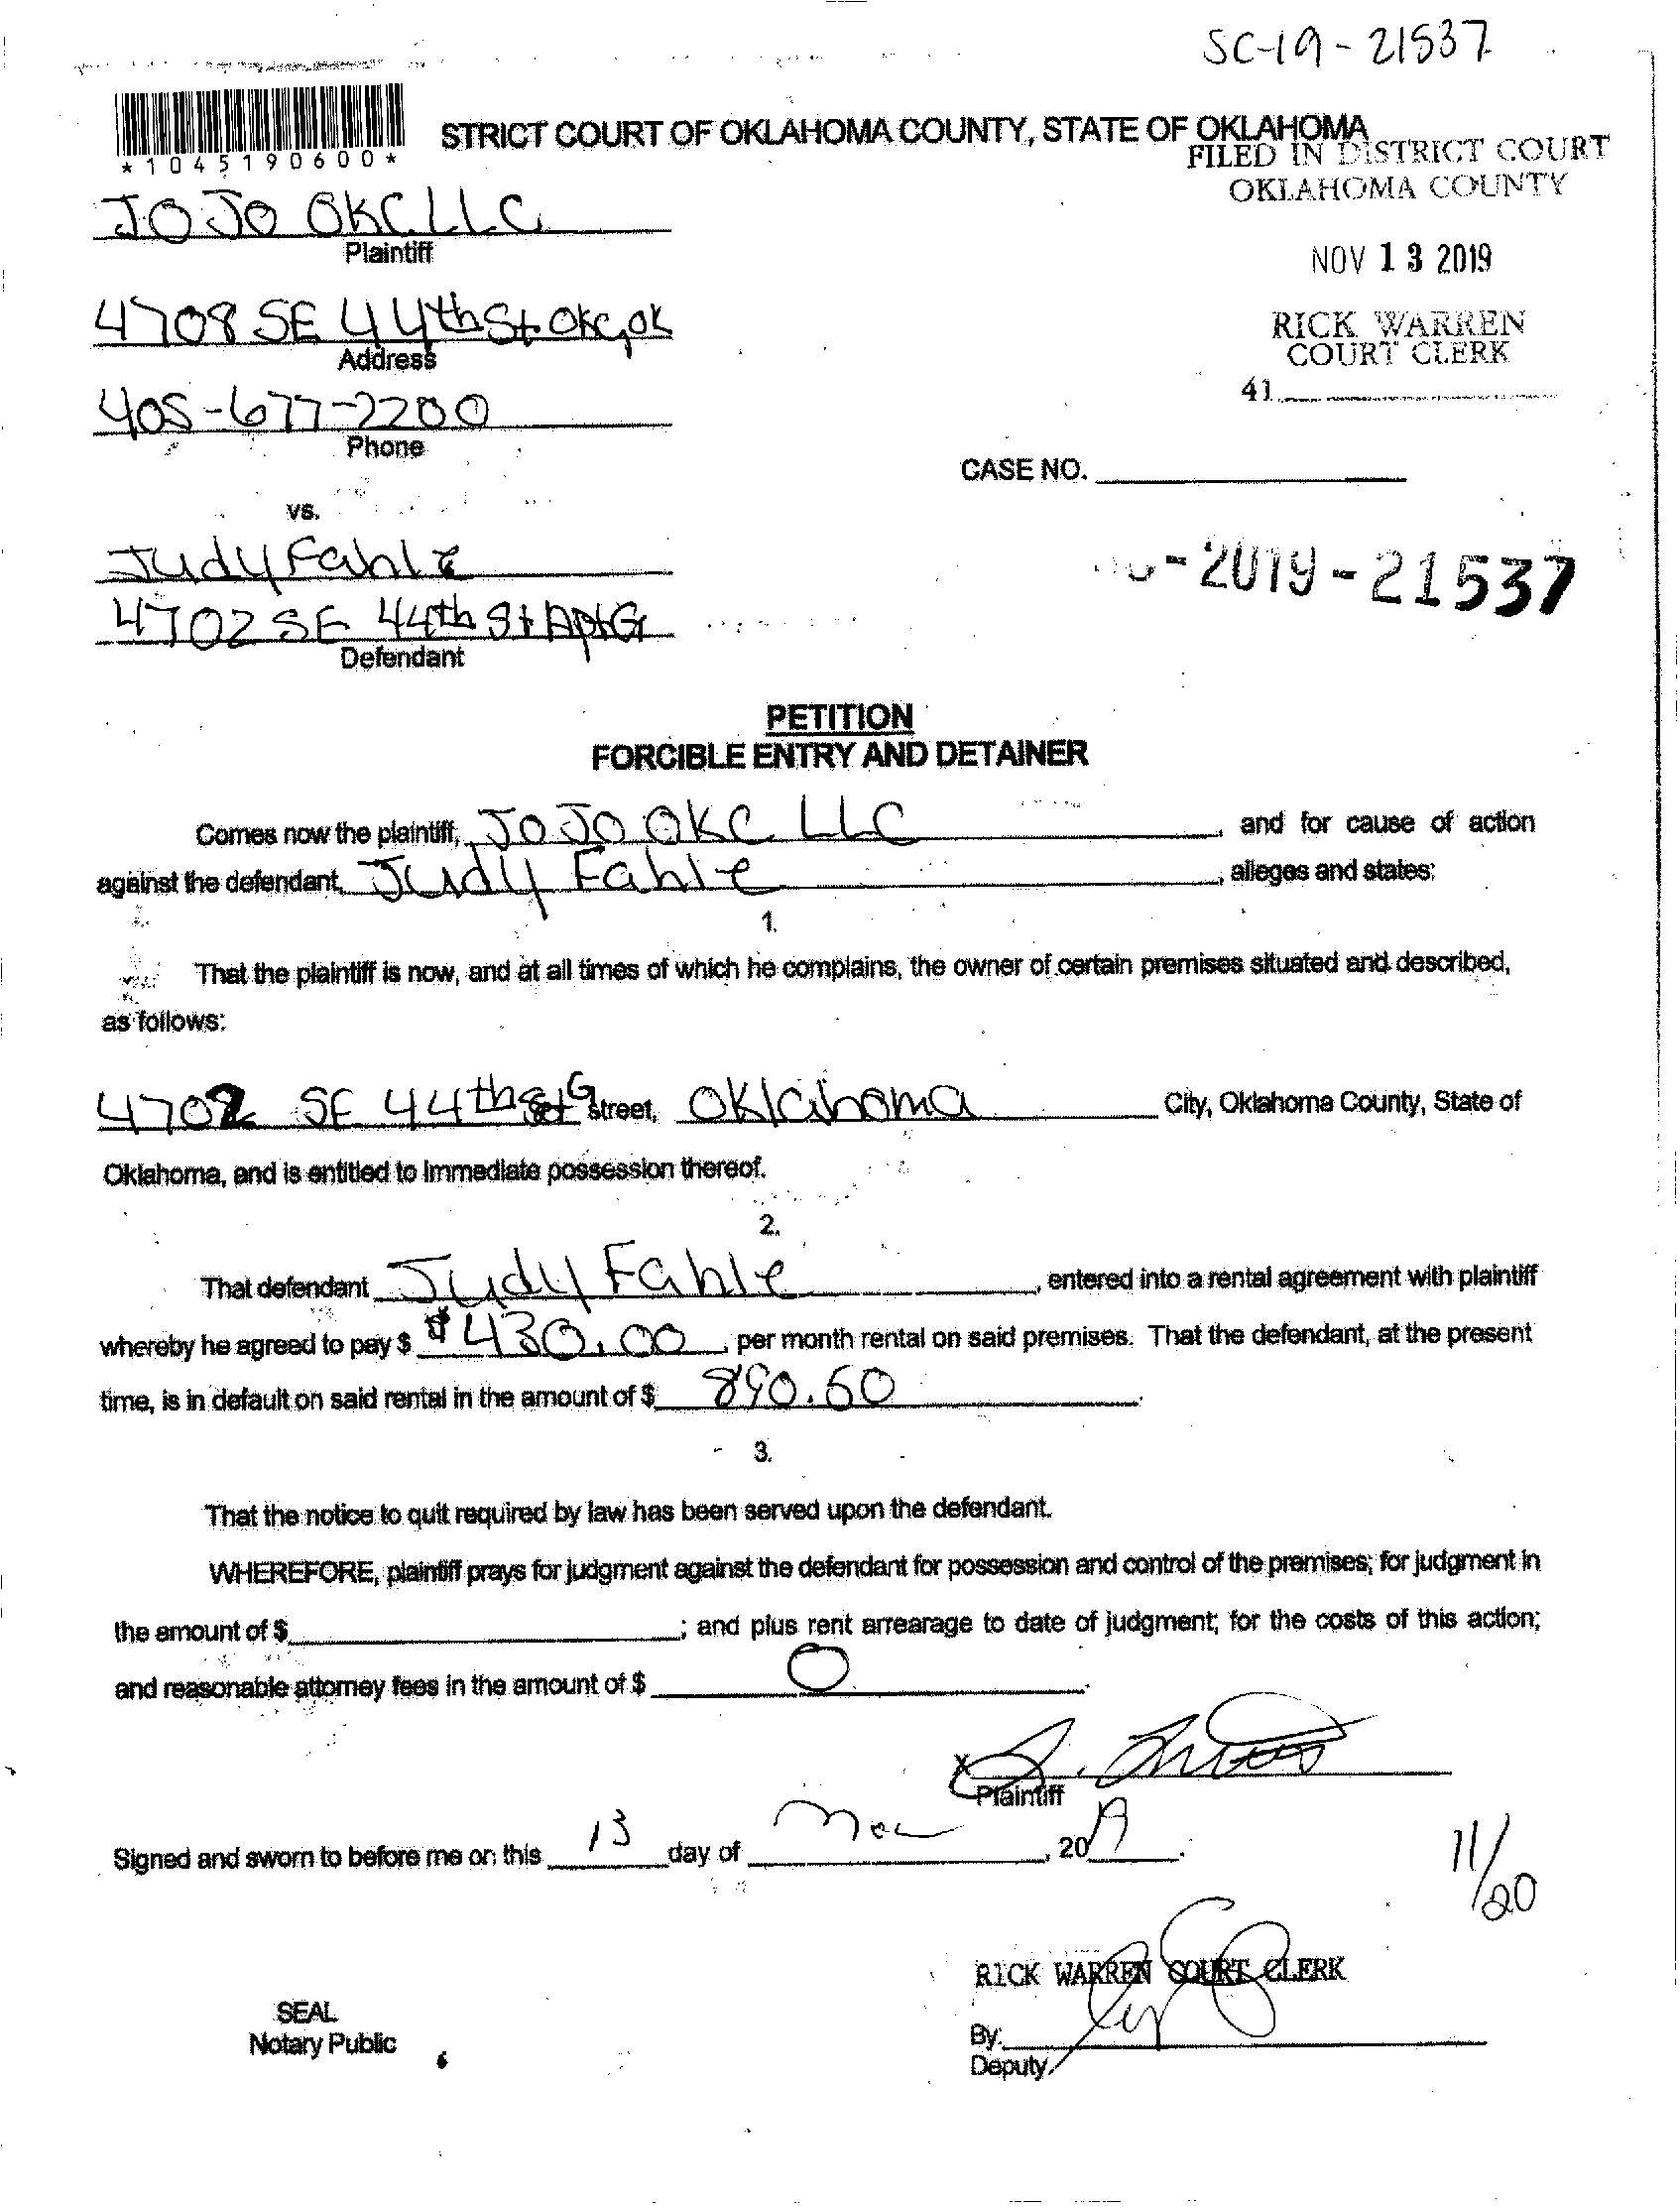 SC-19-21537
STRICT COURT OF OKLAHOMA COUNTY, STATE OF OKLAHOMA
*1045190600*
FILED IN DISTRICT COURT
OKLAHOMA COUNTY
JOJO OKC LLC
Plaintiff
NOV 13 2019
4708 SE 44th St OKC, OK
Address
RICK WARREN
COURT CLERK
41
405-677-2200
Phone
CASE NO.
vs.
Judy Fahle
-2019-21537
4702 SE 44th St Apt G
Defendant
PETITION
FORCIBLE ENTRY AND DETAINER
Comes now the plaintiff, JOJO OKC LLC, and for cause of action
against the defendant, Judy Fahle, alleges and states:
1.
That the plaintiff is now, and at all times of which he complains, the owner of certain premises situated and described,
as follows:
4702 SE 44th G Street, Oklahoma City, Oklahoma County, State of
Oklahoma, and is entitled to immediate possession thereof.
2.
That defendant Judy Fahle, entered into a rental agreement with plaintiff
whereby he agreed to pay $ $430.00, per month rental on said premises. That the defendant, at the present
time, is in default on said rental in the amount of $ 890.60.
3.
That the notice to quit required by law has been served upon the defendant.
WHEREFORE, plaintiff prays for judgment against the defendant for possession and control of the premises; for judgment in
the amount of $ ; and plus rent arrearage to date of judgment; for the costs of this action;
and reasonable attorney fees in the amount of $ 0.
X
Plaintiff
Signed and sworn to before me on this 13 day of Nov, 2019.
11/20
RICK WARREN COURT CLERK
SEAL
Notary Public
By:
Deputy